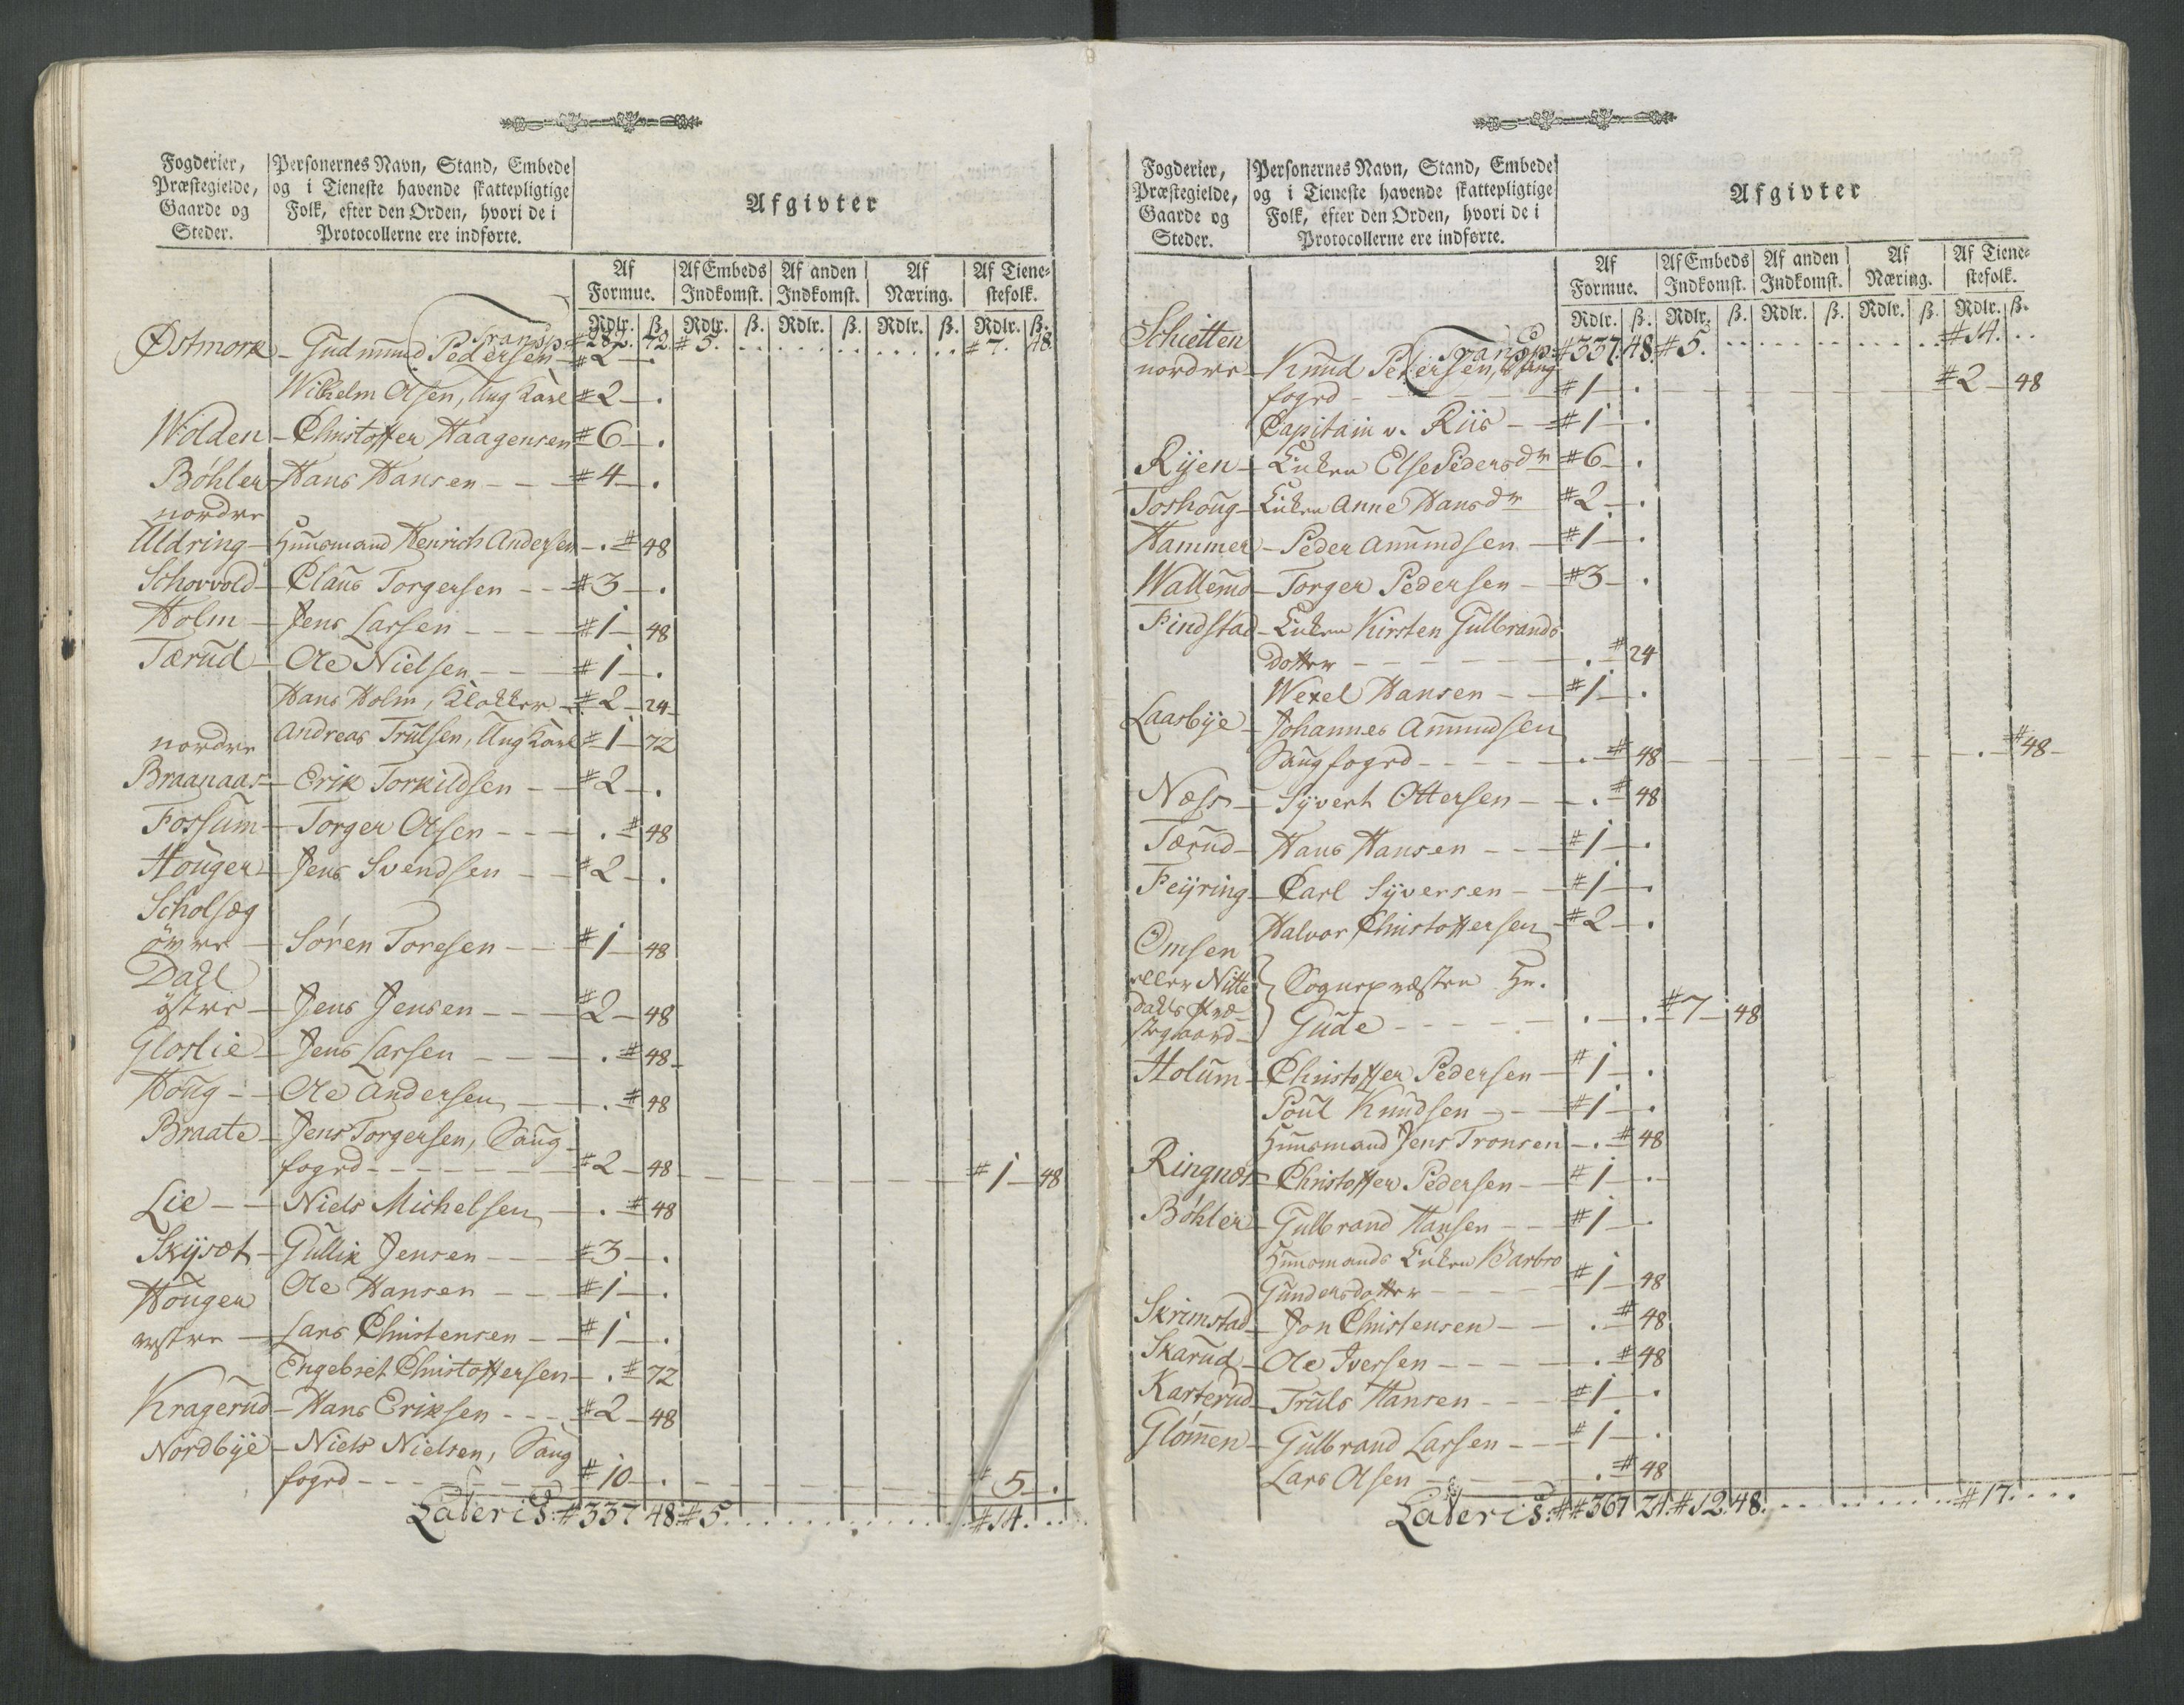 Fogderier, Præstegielde, Gaarde og Steder.
Personernes Navn, Stand, Embede og i Tieneste havende skattepligtige Folk, efter den Orden, hvori de i Protocollerne ere indførte.
Afgivter
Af Formue. Af Embeds Indkomst. Af anden Indkomst. Af Næring. Af Tienestefolk.
Rdlr. ß. Rdlr. ß. Rdlr. ß. Rdlr. ß. Rdlr. ß.
Transp: #282. 72. #5. #7. 48.
Østmork - Gudmund Pedersen #2 - .
Wilhelm Olsen, Ung Karl #2 - .
Wolden - Christoffer Haagensen #6 - .
Bøhler Hans Hansen - - #4 - .
nordre
Uldring - Huusmand Henrich Andersen - . # 48
Schovvold - Claus Torgersen - - #3 - .
Holm - Jens Larsen - - - #1 - 48
Tærud - Ole Nielsen - - #1 - .
Hans Holm, Klokker - #2 - 24
nordre Andreas Trulsen, Ung Karl #1 - 72
Braanaas - Erik Torkildsen - #2 - .
Fossum - Torger Olsen - - - . # 48
Houger - Jens Svendsen - - #2 - .
Scholsæg
övre - Sören Toresen - - #1 - 48
Dahl
östre - Jens Jensen - - - #2 - 48
Gloslie - Jens Larsen - - - . # 48
Houg - - Ole Andersen - - . # 48
Braate - Jens Torgersen, Saug
fogd - - - - #2 - 48 - - - #1 - 48
Lie - - Niels Michelsen - . # 48
Skysæt - Gullix Jensen - - #3 - .
Houger Ole Hansen - - #1 - .
vestre - Lars Christensen - #1 - .
Engebret Christoffersen - . # 72
Kragerud - Hans Eriksen - - - #2 - 48
Nordbye - Niels Nielsen, Saug
fogd - - - - #10 - . - - - # 5 - .
Lateris: #337 48. #5. #14.
Fogderier, Præstegielde, Gaarde og Steder.
Personernes Navn, Stand, Embede og i Tieneste havende skattepligtige Folk, efter den Orden, hvori de i Protocollerne ere indførte.
Afgivter
Af Formue. Af Embeds Indkomst. Af anden Indkomst. Af Næring. Af Tienestefolk.
Rdlr. ß. Rdlr. ß. Rdlr. ß. Rdlr. ß. Rdlr. ß.
Transp: #337. 48. #5. #14. . .
Schietten
nordre - Knud Pedersen, Saug
fogd - - - #1 - . - - - #2 - 48
Capitain v. Riis - - #1 - .
Ryen - Enken Else Pedersdr #6 - .
Toshoug - Enken Anne Hansdr #2 - .
Hammer - Peder Amundsen - #1 - .
Wallemo - Torger Pedersen - #3 - .
Findstad - Enken Kirsten Gulbrands
dotter - - - - . # 24
Wexel Hansen - - #1 - .
Laasbye - Johannes Amundsen
Saugfogd - - - . # 48 - - - . # 48
Næss - Syvert Ottersen - - . # 48
Tærud - Hans Hansen - - #1 - .
Feyring - Carl Syversen - #1 - .
Halvor Christoffersen #2 - .
Omsen
eller Nitte Sognepræsten Hr.
dahls Præ-
stegaard - Gude - - - . - . #7 - 48
Holum - Christoffer Pedersen - #1 - .
Poul Knudsen - - #1 - .
Huusmand Jens Tronsen - . # 48
Ringnæs - Christoffer Pedersen - #1 - .
Bøhler - Gulbrand Hansen - - #1 - .
Huusmands Enken Barbro
Gundersdotter - - - #1 - 48
Skrimstad - Jon Christensen - - . # 48
Skarud - Ole Iversen - - - . # 48
Karterud - Truls Hansen - - - #1 - .
Glømen - Gulbrand Larsen - - #1 - .
Lars Olsen - - - . # 48
Lateris: ##367 24. #12. 48. #17. . .